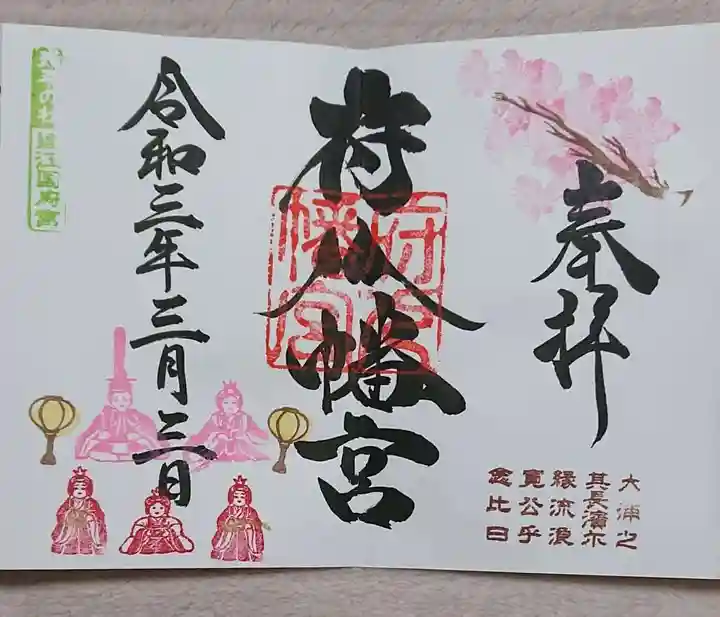 奉拝
大浦之
其長濱尓
縁流浪
寛公乎
念比日
府八幡宮
府八幡宮
令和三年三月三日
天平の杜 遠江国府宮